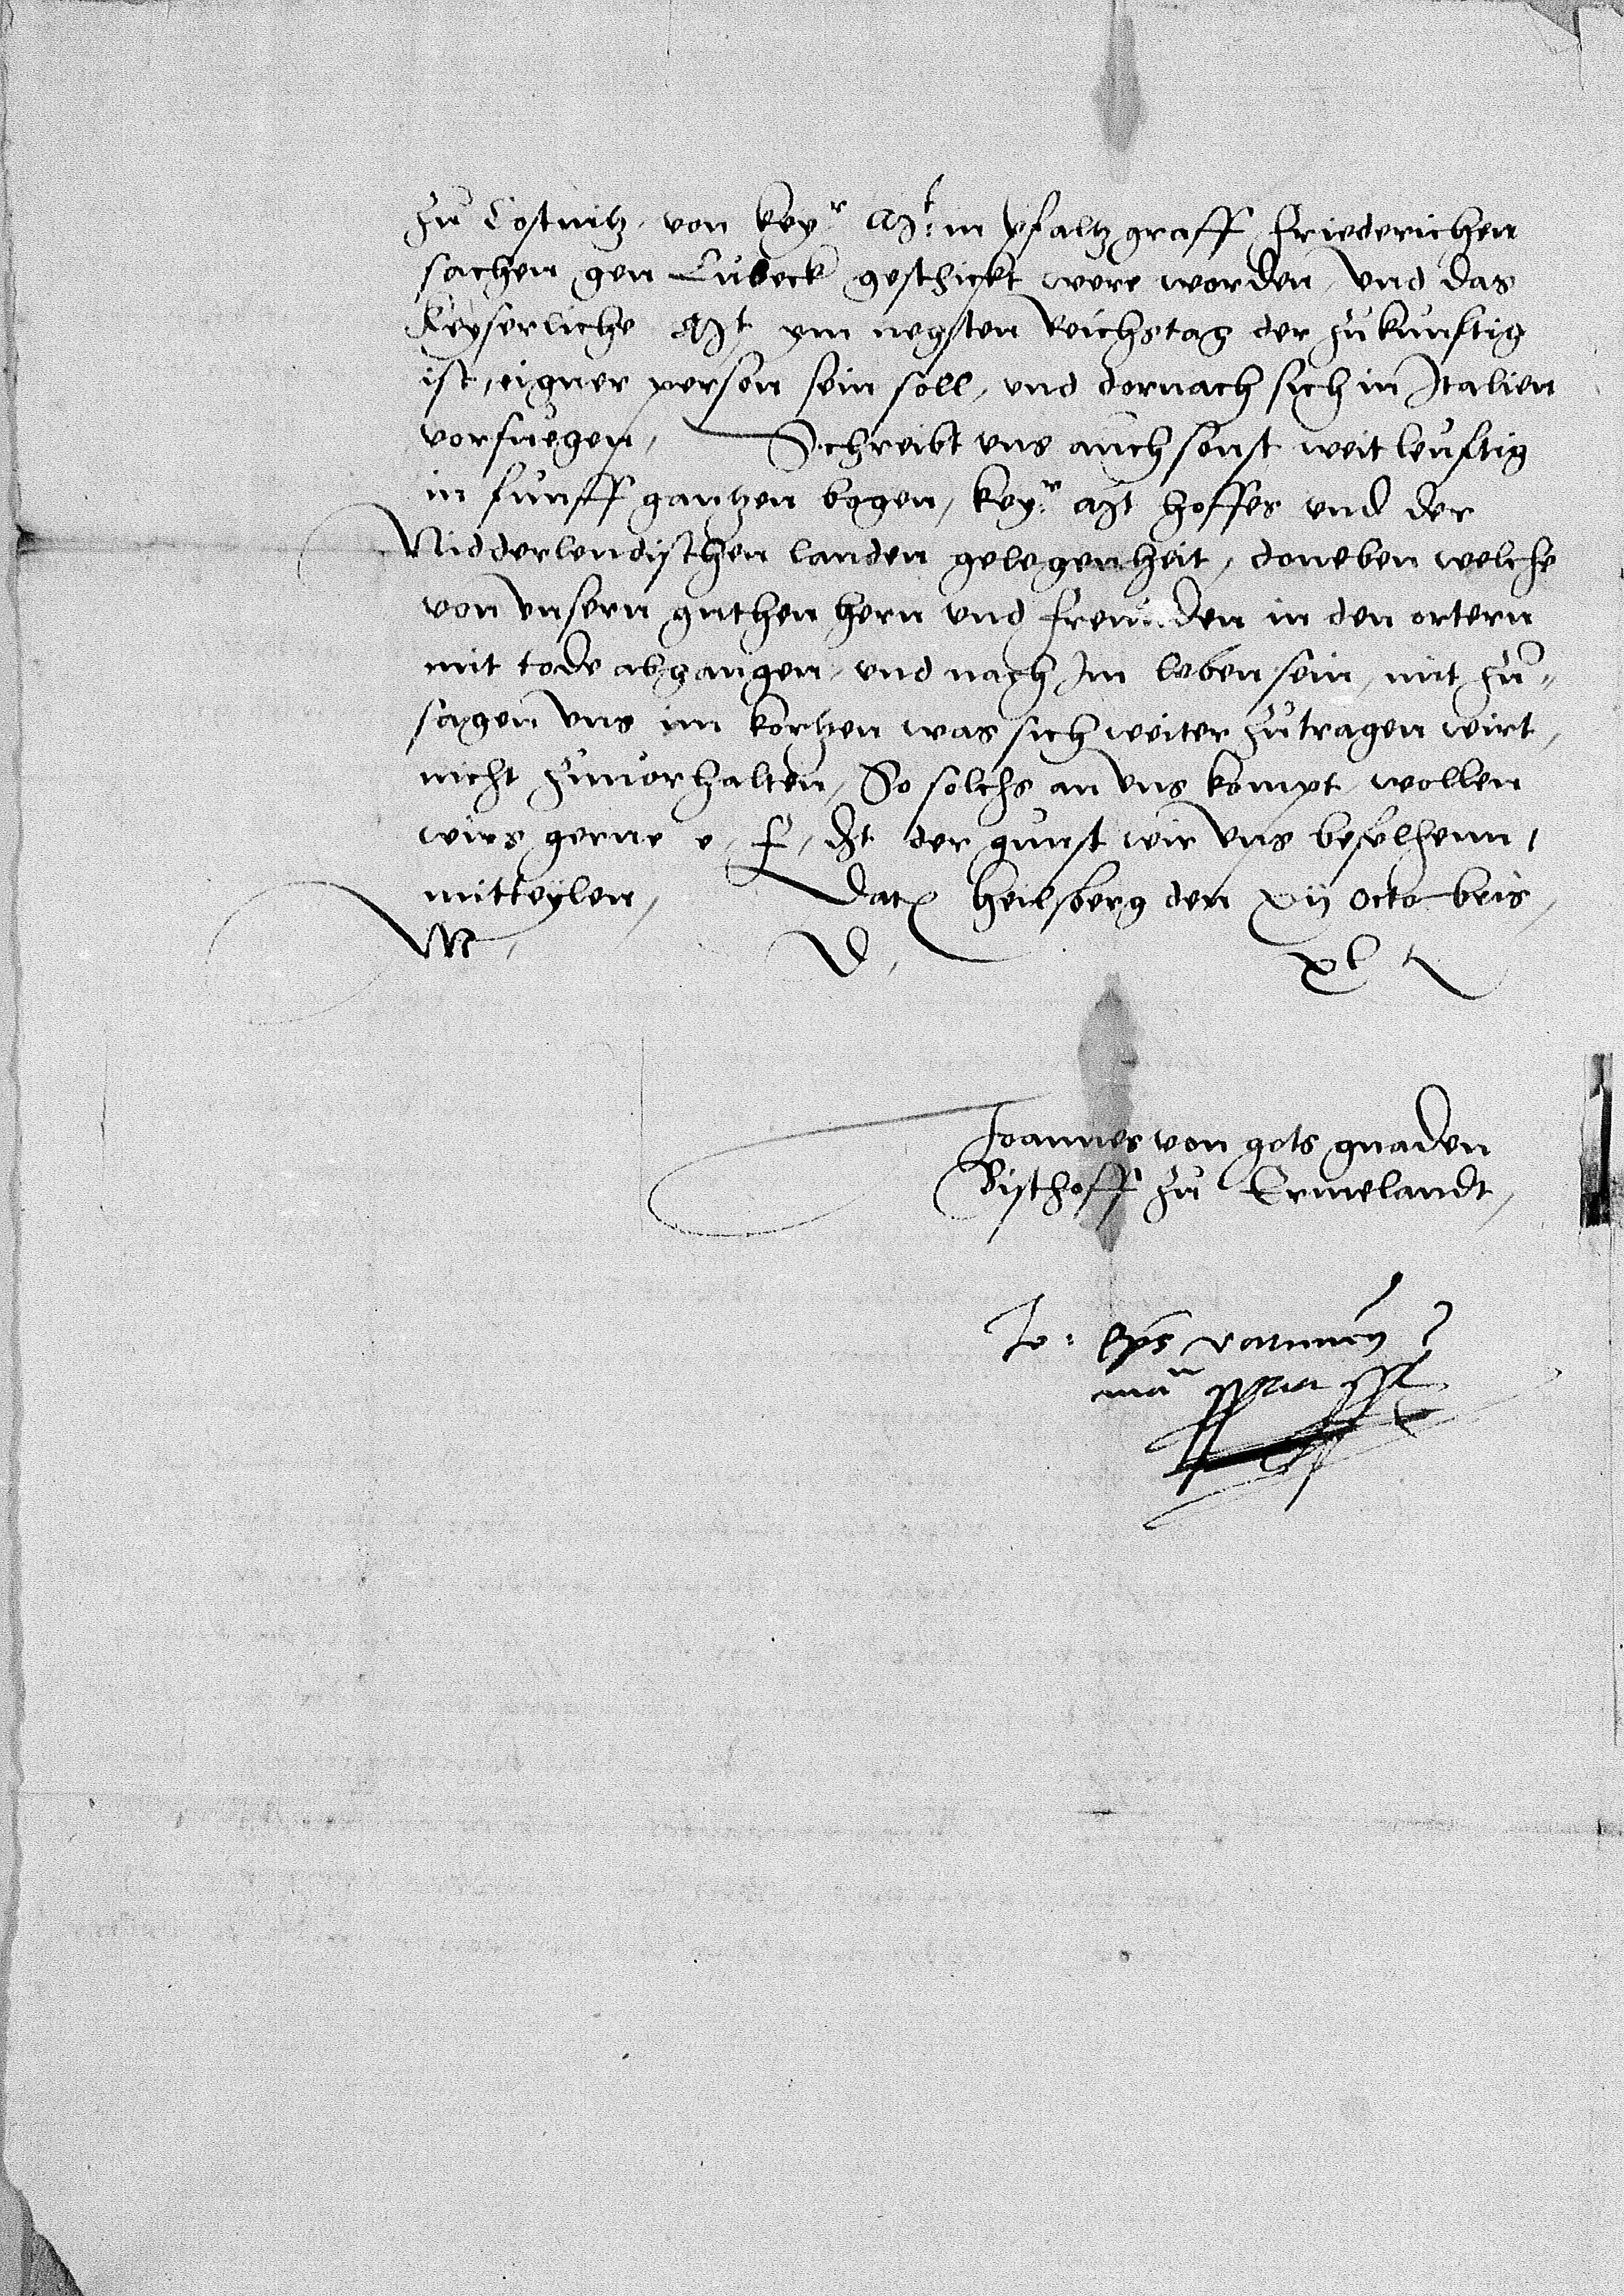 zu Costnitz, von key.r M.t in pfaltzgraff Friederichen
sachen gen Lubeck geschickt were worden, und das
Keyserliche Mt ym negsten Reichstag der zukunftig
ist, eigner person sein soll, und dornach sich in Italien
vorfuegen, Schreibt uns auch sonst weitleuftig
in funff gantzen bogen, key.r Mt hoffes und der
Nidderlendischen landen gelegenheit, doneben welche
von unsern guthen hern und freunden in den ortern
mit tode abgangen, und nach im leben sein, mit zu-
sagen uns im kortzen was sich weiter zutragen wirt,
nicht zuvorhalten, So solchs an uns kompt, wollen
wirs gerne e, f, dt der gunst wir uns befelhenn,
mitteylen, Dat Heilsberg den xij octobris,
M, D, xl
Joannes von gots gnaden
Bischoff zu Ermelandt,
Jo: Eps Varmien